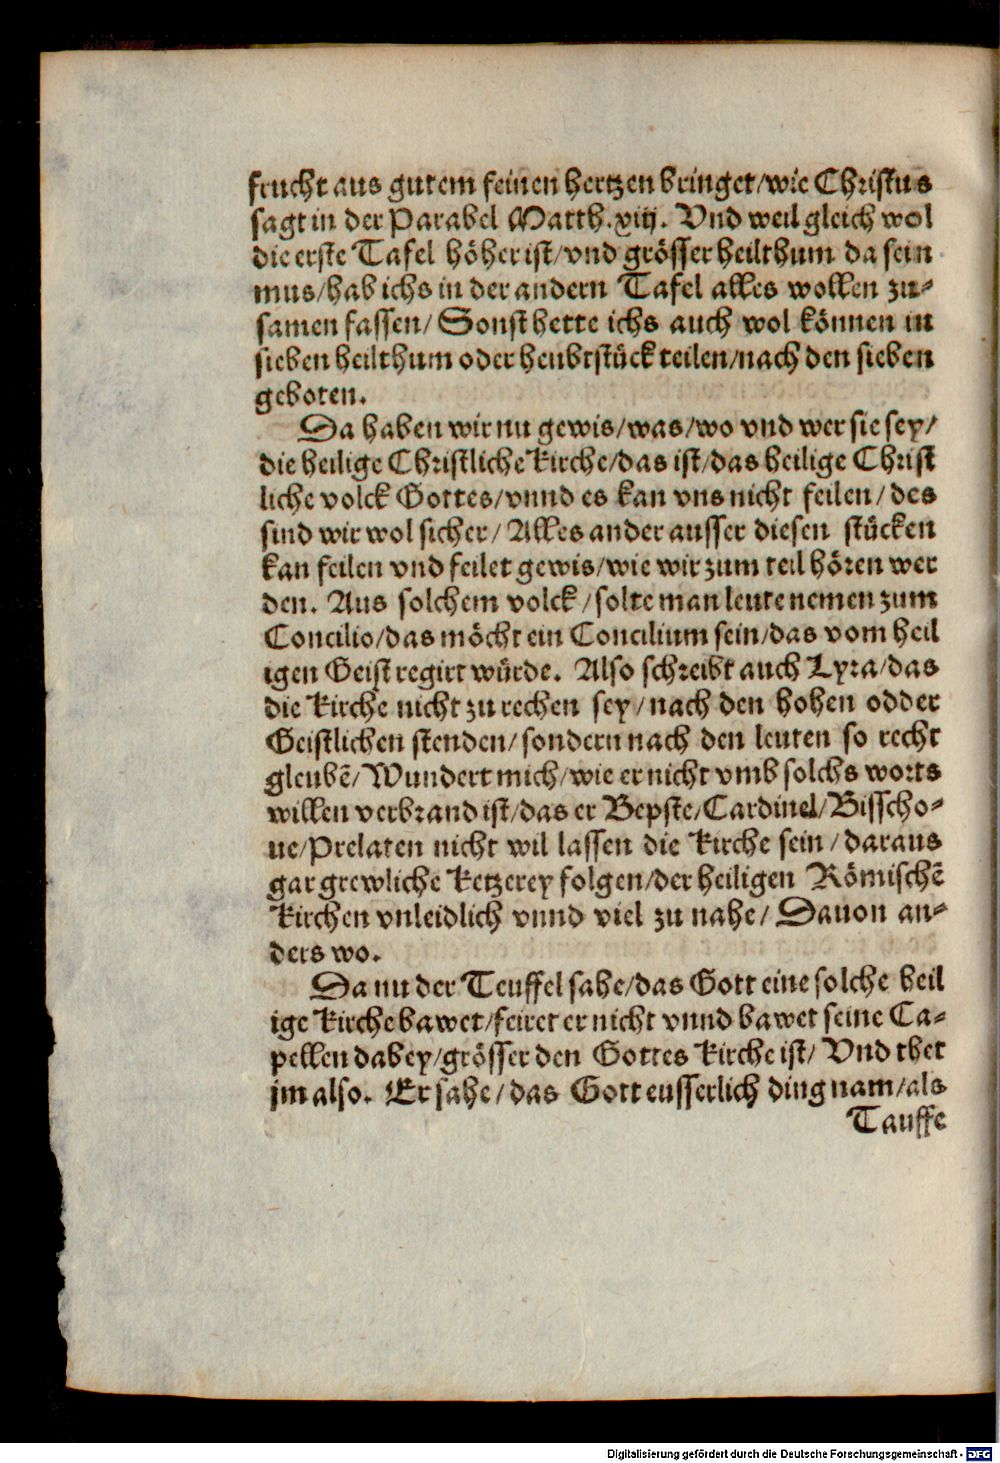 frucht aus gutem feinen hertzen bringet/wie Christus
sagt in der Parabel Matth.xiij. Vnd weil gleich wol
die erste Tafel höher ist/vnd grösser heilthum da sein
mus/hab ichs in der andern Tafel alles wollen zu-
samen fassen/ Sonst hette ichs auch wol können in
sieben heilthum oder heubtstück teilen/nach den sieben
geboten.
Da haben wir nu gewis/was/wo vnd wer sie sey/
die heilige Christliche Kirche/das ist/das heilige Christ
liche volck Gottes/vnnd es kan vns nicht feilen/des
sind wir wol sicher/ Alles ander ausser diesen stücken
kan feilen vnd feilet gewis/wie wir zum teil hören wer
den. Aus solchem volck/solte man leute nemen zum
Concilio/das möcht ein Concilium sein/das vom heil
igen Geist regirt würde. Also schreibt auch Lyra/das
die Kirche nicht zu rechen sey/nach den hohen odder
Geistlichen stenden/sondern nach den leuten so recht
gleubē/Wundert mich/wie er nicht vmb solchs worts
willen verbrand ist/das er Bepste/Cardinel/Bisscho-
ue/Prelaten nicht wil lassen die Kirche sein/daraus
gar grewliche Ketzerey folgen/der heiligen Römischē
Kirchen vnleidlich vnnd viel zu nahe/ Dauon an-
ders wo.
Da nu der Teuffel sahe/das Gott eine solche heil
ige Kirche bawet/feiret er nicht vnnd bawet seine Ca-
pellen dabey/grösser den Gottes Kirche ist/ Vnd thet
jm also. Er sahe/das Gott eusserlich ding nam/als
Tauffe
Digitalisierung gefördert durch die Deutsche Forschungsgemeinschaft - DFG